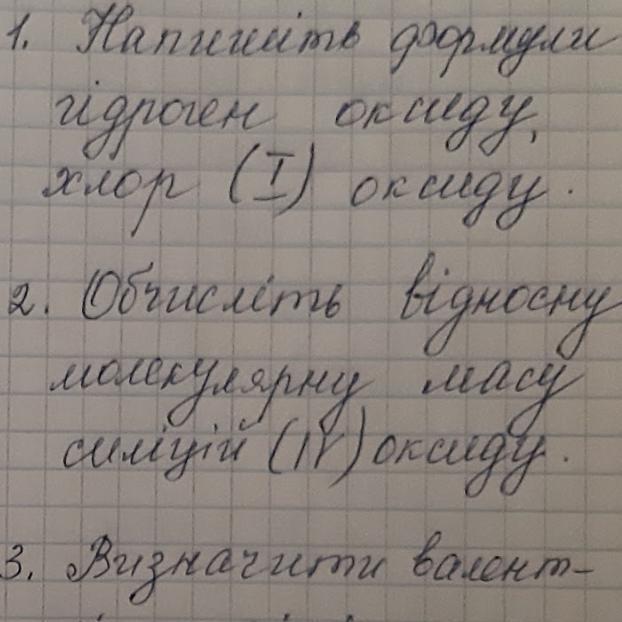 1. Напишіть формули
гідроген оксиду,
хлор (I) оксиду.
2. Обчисліть відносну
молекулярну масу
силіцій (IV) оксиду.
3. Визначити валент-